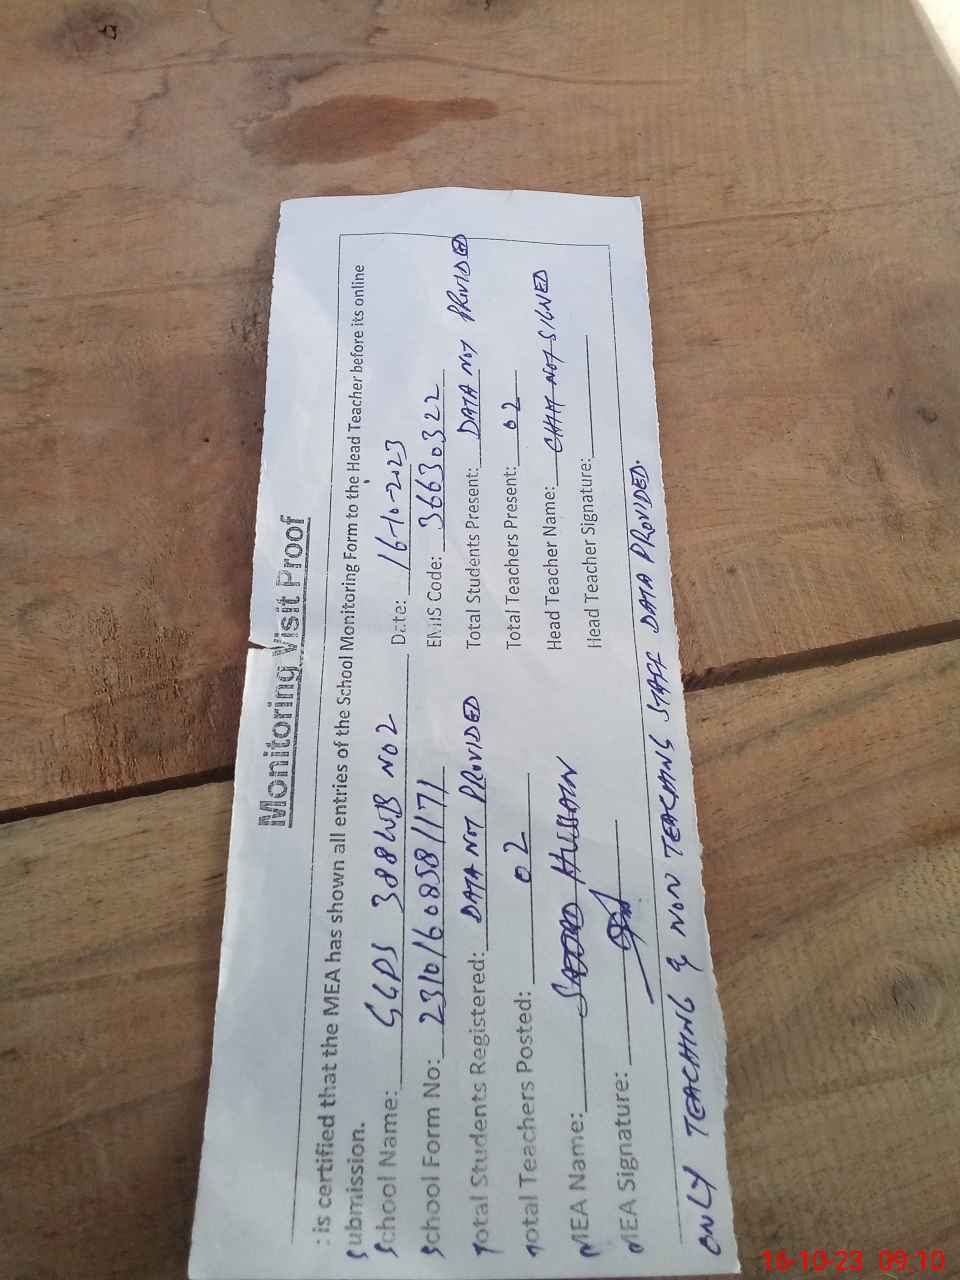 Monitoring Visit Proof
: is certified that the MEA has shown all entries of the School Monitoring Form to the Head Teacher before its online
submission.
School Name: GGPS 388WB NO2 Date: 16-10-2023
School Form No: 231016085811171 EMIS Code: 36630322
Total Students Registered: DATA NOT PROVIDED Total Students Present: DATA NOT PROVIDED
Total Teachers Posted: 02 Total Teachers Present: 02
MEA Name: SAJJAD HUSSAIN Head Teacher Name: NOT SIGNED
MEA Signature: Head Teacher Signature:
ONLY TEACHING & NON TEACHING STAFF DATA PROVIDED.
16-10-23 09:10